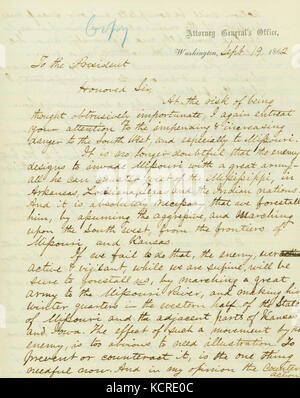 Copy
Attorney General's Office,
Washington, Sept. 19. 1862
To the President
Honored Sir,
At the risk of being
thought obtrusively importunate, I again entreat
your attention to the impending & increasing
danger to the South West, and especially to Missouri.
It is no longer doubtful that the enemy
designs to invade Missouri with a great army—
all he can west of the Mississippi, in
Arkansas, and the Indian nations.
And it is absolutely necessary that we forestall
him, by assuming the aggressive, and marching
upon the South West, from the frontiers of
Missouri and Kansas
If we fail to do that, the enemy,
active & vigilant, while we are supine, will be
sure to forestall us, by marching a great
army to the Missouri River, and making his
winter quarters in the western half of the State
of Missouri and the adjacent parts of Kansas
and Iowa. The effect of such a movement by the
enemy, is too obvious to need illustration. To
prevent or counteract it, is the one thing
needful now. And in my opinion the Counter
action
alamy
KCRE0C